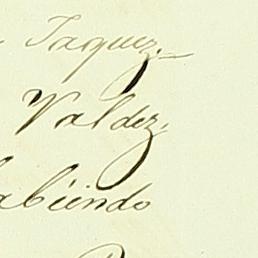 Jaquez
Valdez,
abiendo